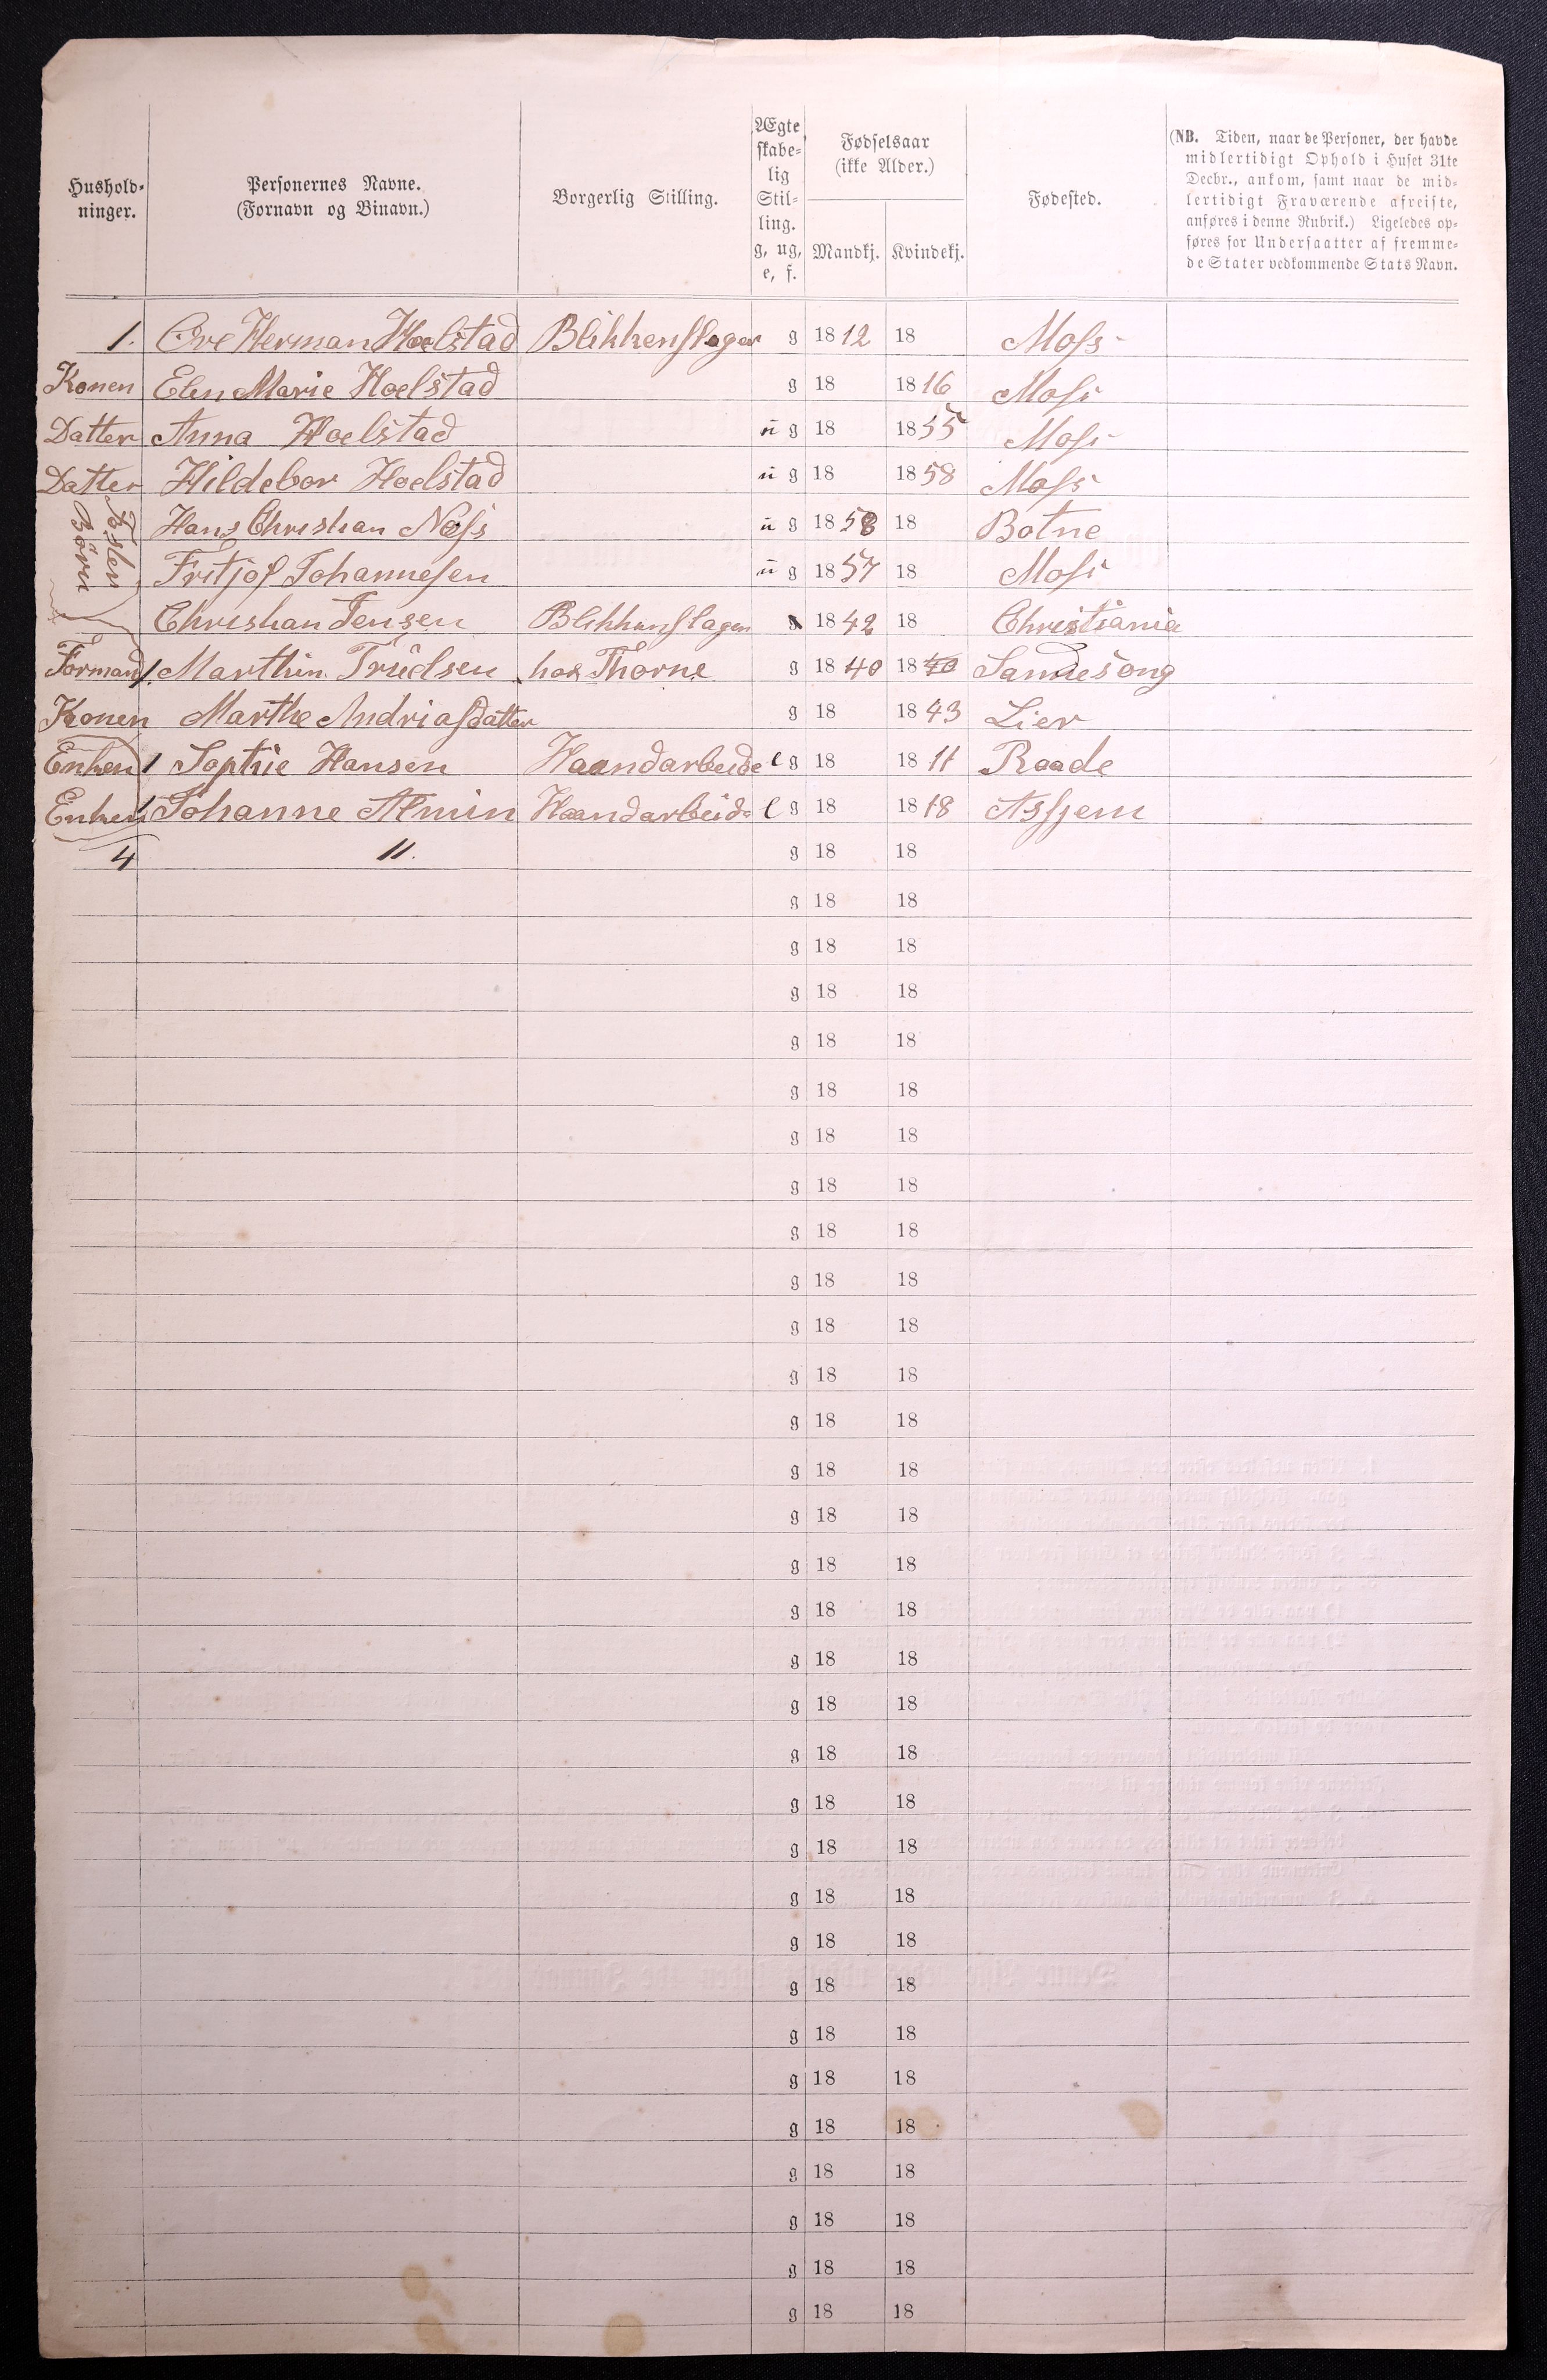 Hushold-
ninger.
Personernes Navne.
(Fornavn og Binavn.)
Borgerlig Stilling.
Ægte
skabe-
lig
Stil-
ling.
g, ug,
e, f.
Fødselsaar
(ikke Alder.)
Mandkj. Kvindekj.
Fødested.
(NB. Tiden, naar de Personer, der havde
midlertidigt Ophold i Huset 31te
Decbr., ankom, samt naar de mid-
lertidigt Fraværende afreiste,
anføres i denne Rubrik.) Ligeledes op-
føres for Undersaatter af fremme-
de Stater vedkommende Stats Navn.
1. Ove Herman Hoelstad Blikkenslager g 1812 18 Moss
Konen Elen Marie Hoelstad g 18 1816 Moss
Datter Anna Hoelstad u g 18 1855 Moss
Datter Hildebor Hoelstad u g 18 1858 Moss
Foster Börn
Hans Christian Næss u g 1858 18 Botne
Fritjof Johannesen u g 1857 18 Moss
Christian Jensen Blikkenslager 1842 18 Christiania
Formand 1. Marthin Truelsen hos Thorne g 1840 1840
Konen Marthe Andriasdatter g 18 1843 Lier
Enken 1 Sophie Hansen Haandarbeide e g 18 1811 Raade
Enken 1 Johanne Almin Haandarbeide e g 18 1818
4 11. g 18 18
g 18 18
g 18 18
g 18 18
g 18 18
g 18 18
g 18 18
g 18 18
g 18 18
g 18 18
g 18 18
g 18 18
g 18 18
g 18 18
g 18 18
g 18 18
g 18 18
g 18 18
g 18 18
g 18 18
g 18 18
g 18 18
g 18 18
g 18 18
g 18 18
g 18 18
g 18 18
g 18 18
g 18 18
g 18 18
g 18 18
g 18 18